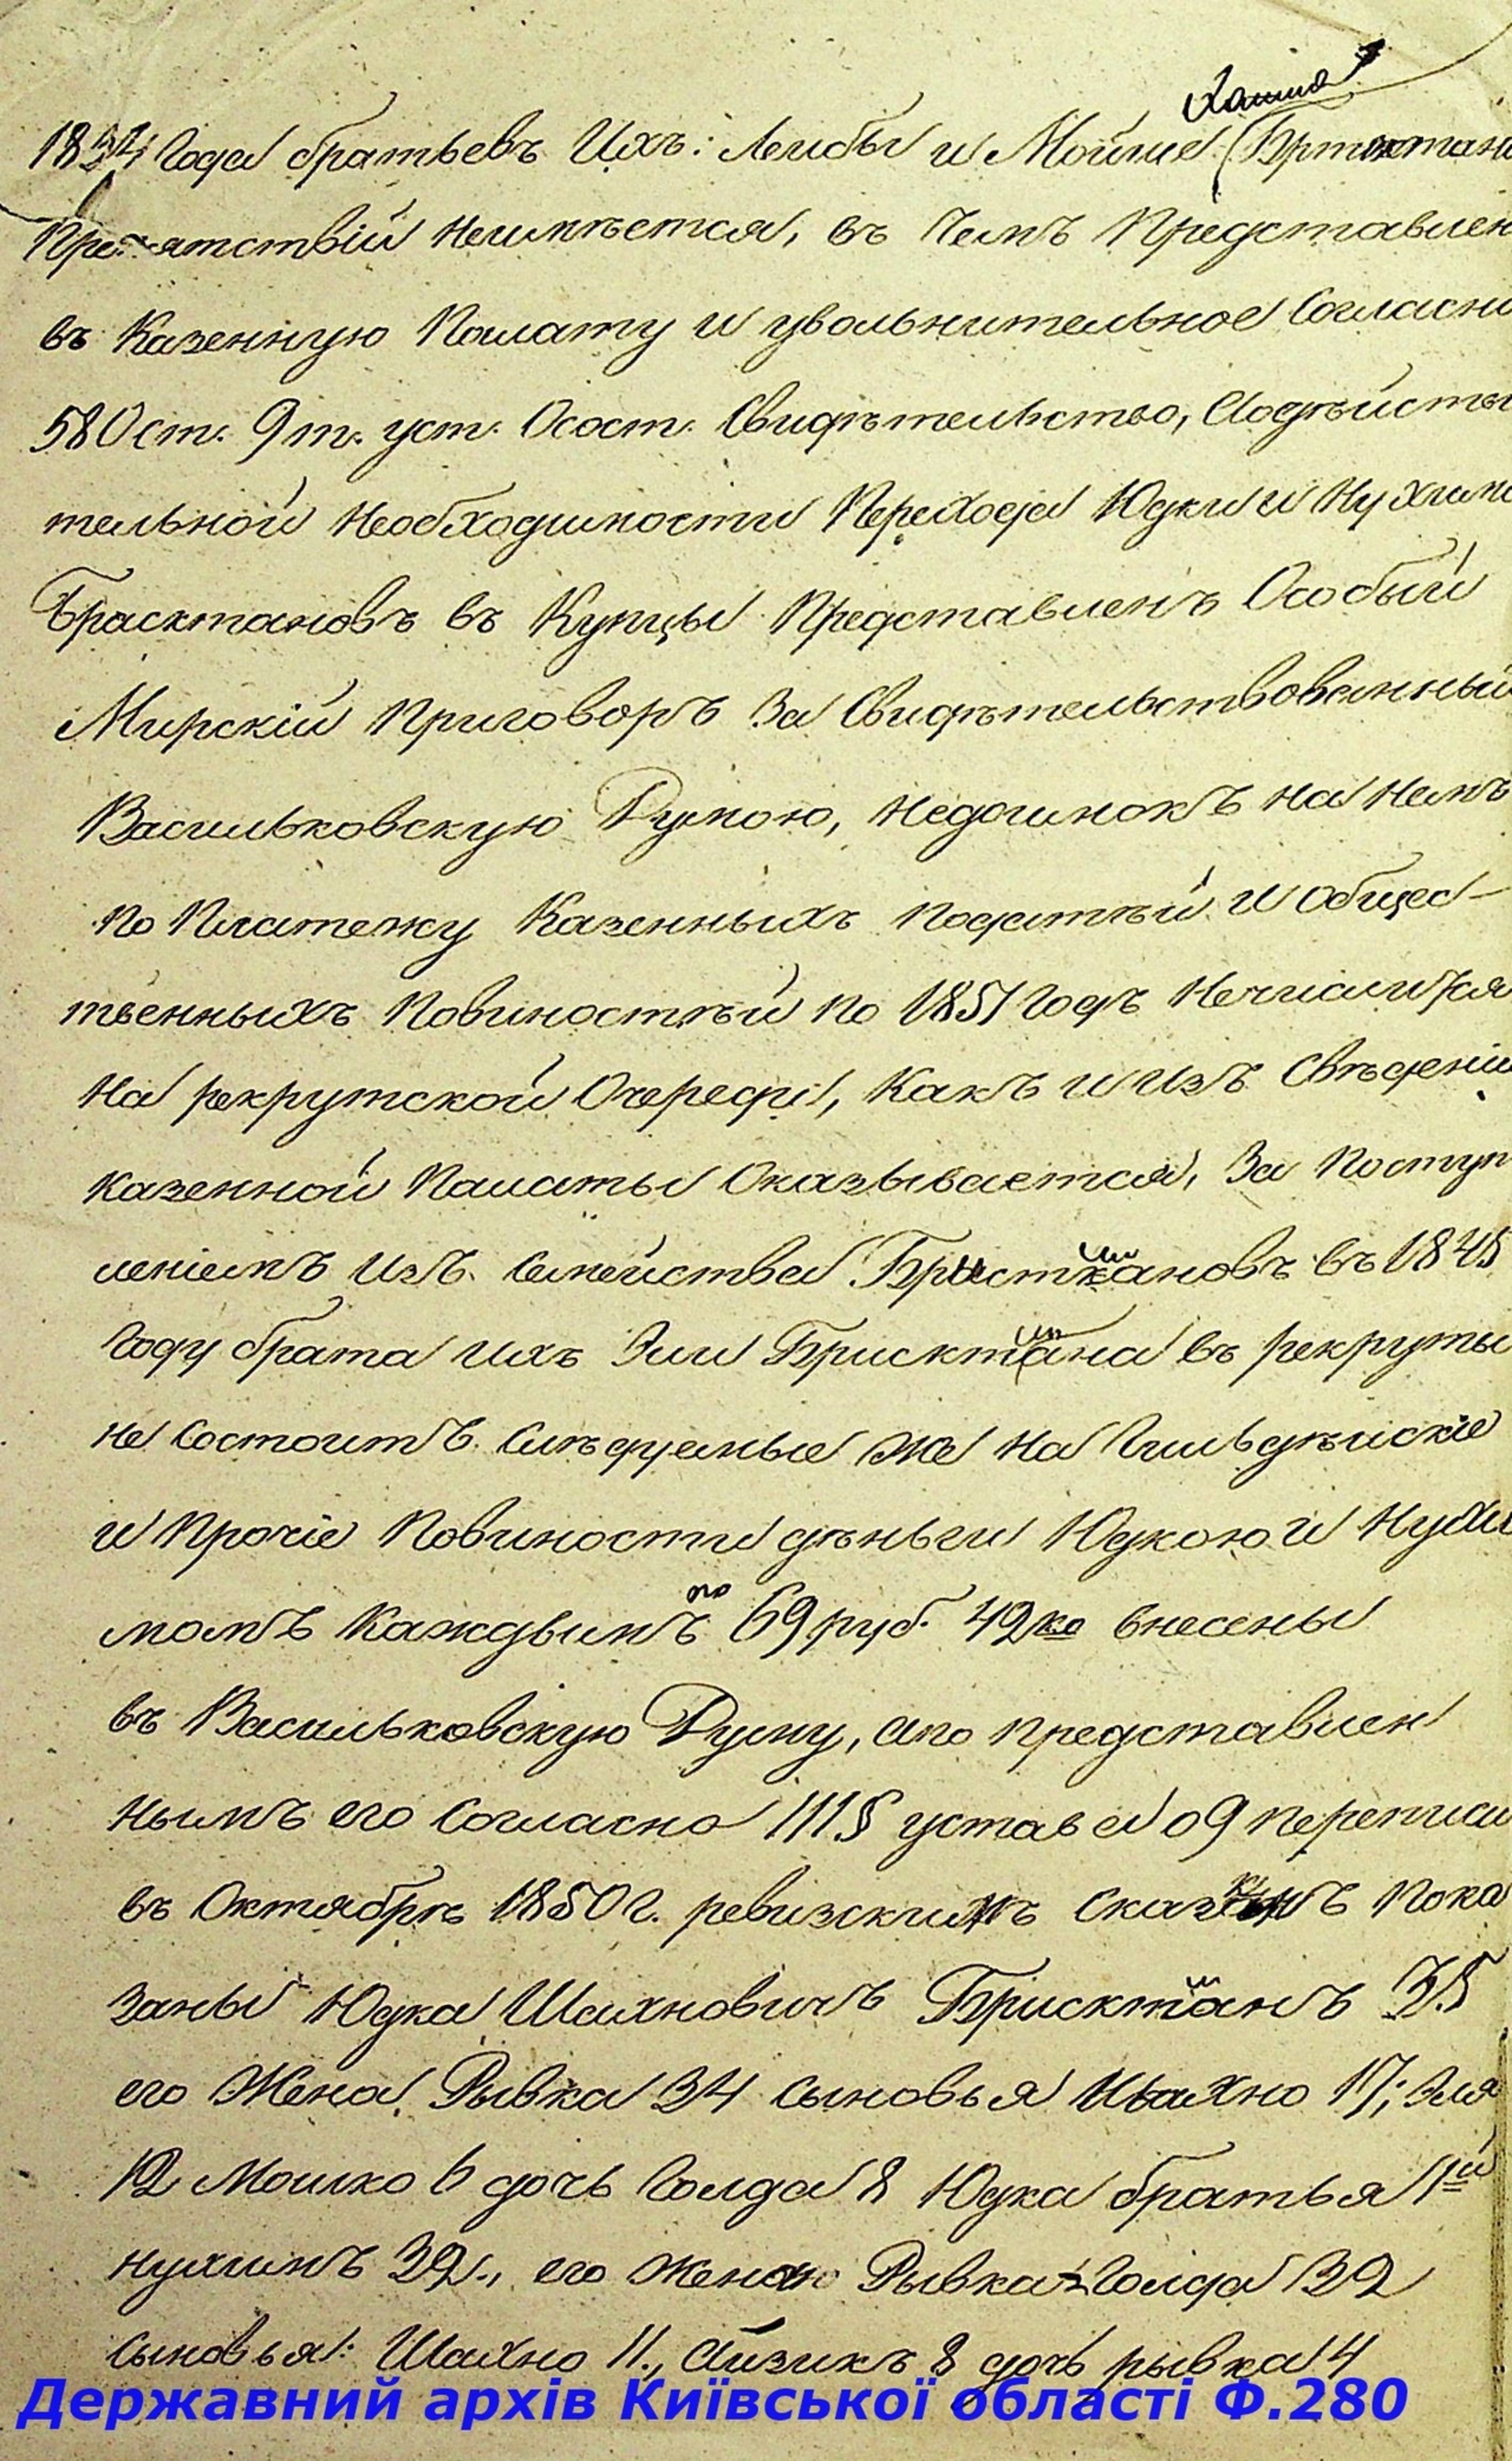 Хаима
1834 Года братьевъ Ихъ: Лейбы и Мойше (
Препятствій Неимѣется, въ Чемъ Представлен
въ Казенную Палату и увольнительное Согласно
580 ст. 9 т. уст. Осост. Свидѣтельство, Аодѣйстви
тельной Необходимости Перехода Юдки и Нухима
Брасктановъ въ Купцы Представленъ Особый
Мирскій Приговоръ За Свидѣтельствованный
Васильковскую Думою, Недоимокъ На Немъ
По Платежу Казенныхъ Податѣй и общес-
твенныхъ Повиностѣй По 1851 Годъ Нечислится
На рекрутской Очереди, Какъ и изъ Свѣденій
казенной Палаты Оказывается, За Поступ
леніемъ изъ Семейства въ 1848
Году брата ихъ Эли Брискмана въ рекруты
не состоитъ. Слѣдуемые Же На Гильдѣйскіе
и Прочіе Повиности дѣньги Юдкою и Нухи
момъ Каждымъ по 69 руб. 42 ко внесены
въ Васильковскую Думу, Апо представлен
нымъ его Согласно 111§ устава о 9 переписи
въ Октябрѣ 1850 г. ревизскимъ Сказкамъ Пока
заны Юдка Шахновичъ Брискманъ 35
его Жена Рывка 34 сыновья Шахно 17; Эля
12 Мошко 6 дочь Голда 8 Юдка братья 1й
Нухимъ 32., его Жена Рывка Голда 32
Сыновья: Шахно 11., Айзикъ 8 дочь рывка 4
Державний архів Київської області Ф.280